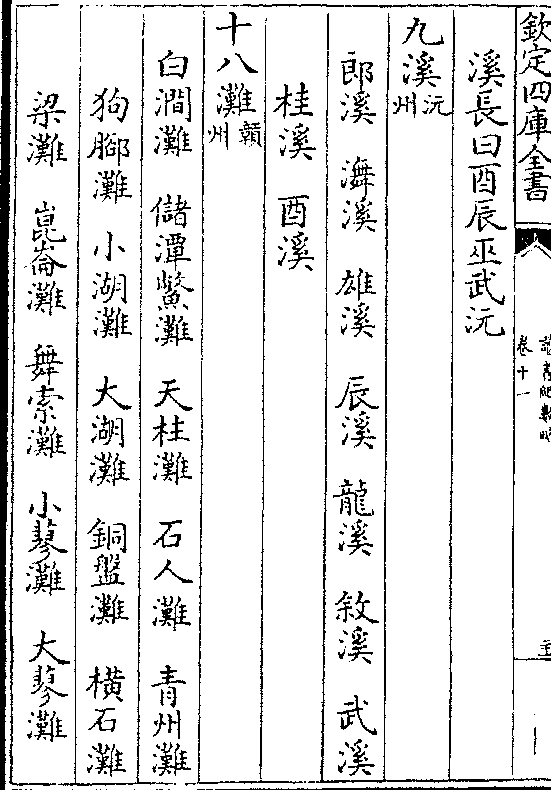 欽定四庫全書
卷十一
溪長曰酉辰巫武沅
九溪沅州
郎溪 潕溪 雄溪 辰溪 龍溪 敘溪 武溪
桂溪 酉溪
十八灘贛州
白澗灘 儲潭鱉灘 天柱灘 石人灘 青州灘
狗腳灘 小湖灘 大湖灘 銅盤灘 橫石灘
梁灘 崑崙灘 舞索灘 小蓼灘 大蓼灘